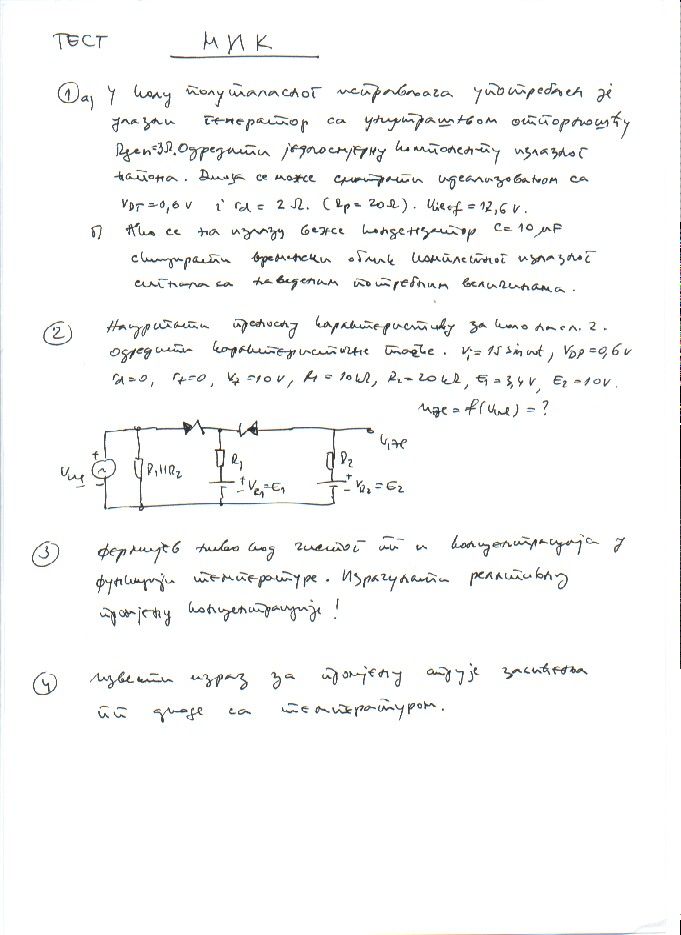 ТЕСТ МИК
① а) У колу полуталасног исправљача употребљен је
улазни генератор са унутрашњом отпорношћу
Rgen=3Ω. Одредити једносмјерну компоненту излазног
напона. Диода се може сматрати идеализованом са
VDT=0,6 V и rd = 2 Ω. (Rp=20Ω). Uief=12,6 V.
б) Ако се на излазу веже кондензатор C=10 μF
скицирати временски облик комплетног излазног
сигнала са наведеним потребним величинама.
② Нацртати преносну карактеристику за коло на сл. 2.
Одредити карактеристичне тачке. Vi=15 sin ωt, VDP=0,6 V
rd=0, rz=0, Vz=10V, R1=10kΩ, R2=20kΩ, E1=3,4V, E2=10V.
uiz = f(Uul) = ?
Vize
Vul + - R1||R2 R1 + - VR1=E1 R2 + - VR2=E2
③ Фермијев ниво код чистог пп и концентрација у
функцији температуре. Израчунати релативну
промјену концентрације!
④ Извести израз за промјену струје засићења
пп диоде са температуром.